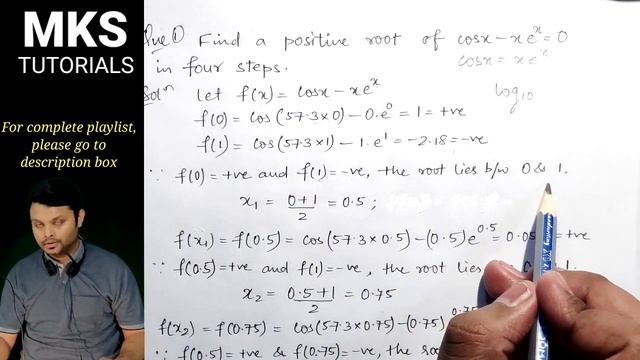 MKS
TUTORIALS
For complete playlist,
please go to
description box
Que① Find a positive root of cosx - xe^x = 0
in four steps.
cosx = xe^x
Solⁿ let f(x) = cosx - xe^x
log₁₀
f(0) = cos(57.3×0) - 0.e^0 = 1 = +ve
f(1) = cos(57.3×1) - 1.e^1 = -2.18 = -ve
∵ f(0) = +ve and f(1) = -ve, the root lies b/w 0 & 1.
x₁ = (0+1)/2 = 0.5 ;
f(x₁) = f(0.5) = cos(57.3×0.5) - (0.5)e^0.5 = 0.05 = +ve
∵ f(0.5) = +ve and f(1) = -ve, the root lies 1.
x₂ = (0.5+1)/2 = 0.75
f(x₂) = f(0.75) = cos(57.3×0.75) - (0.75)
∵ f(0.5) = +ve & f(0.75) = -ve, the